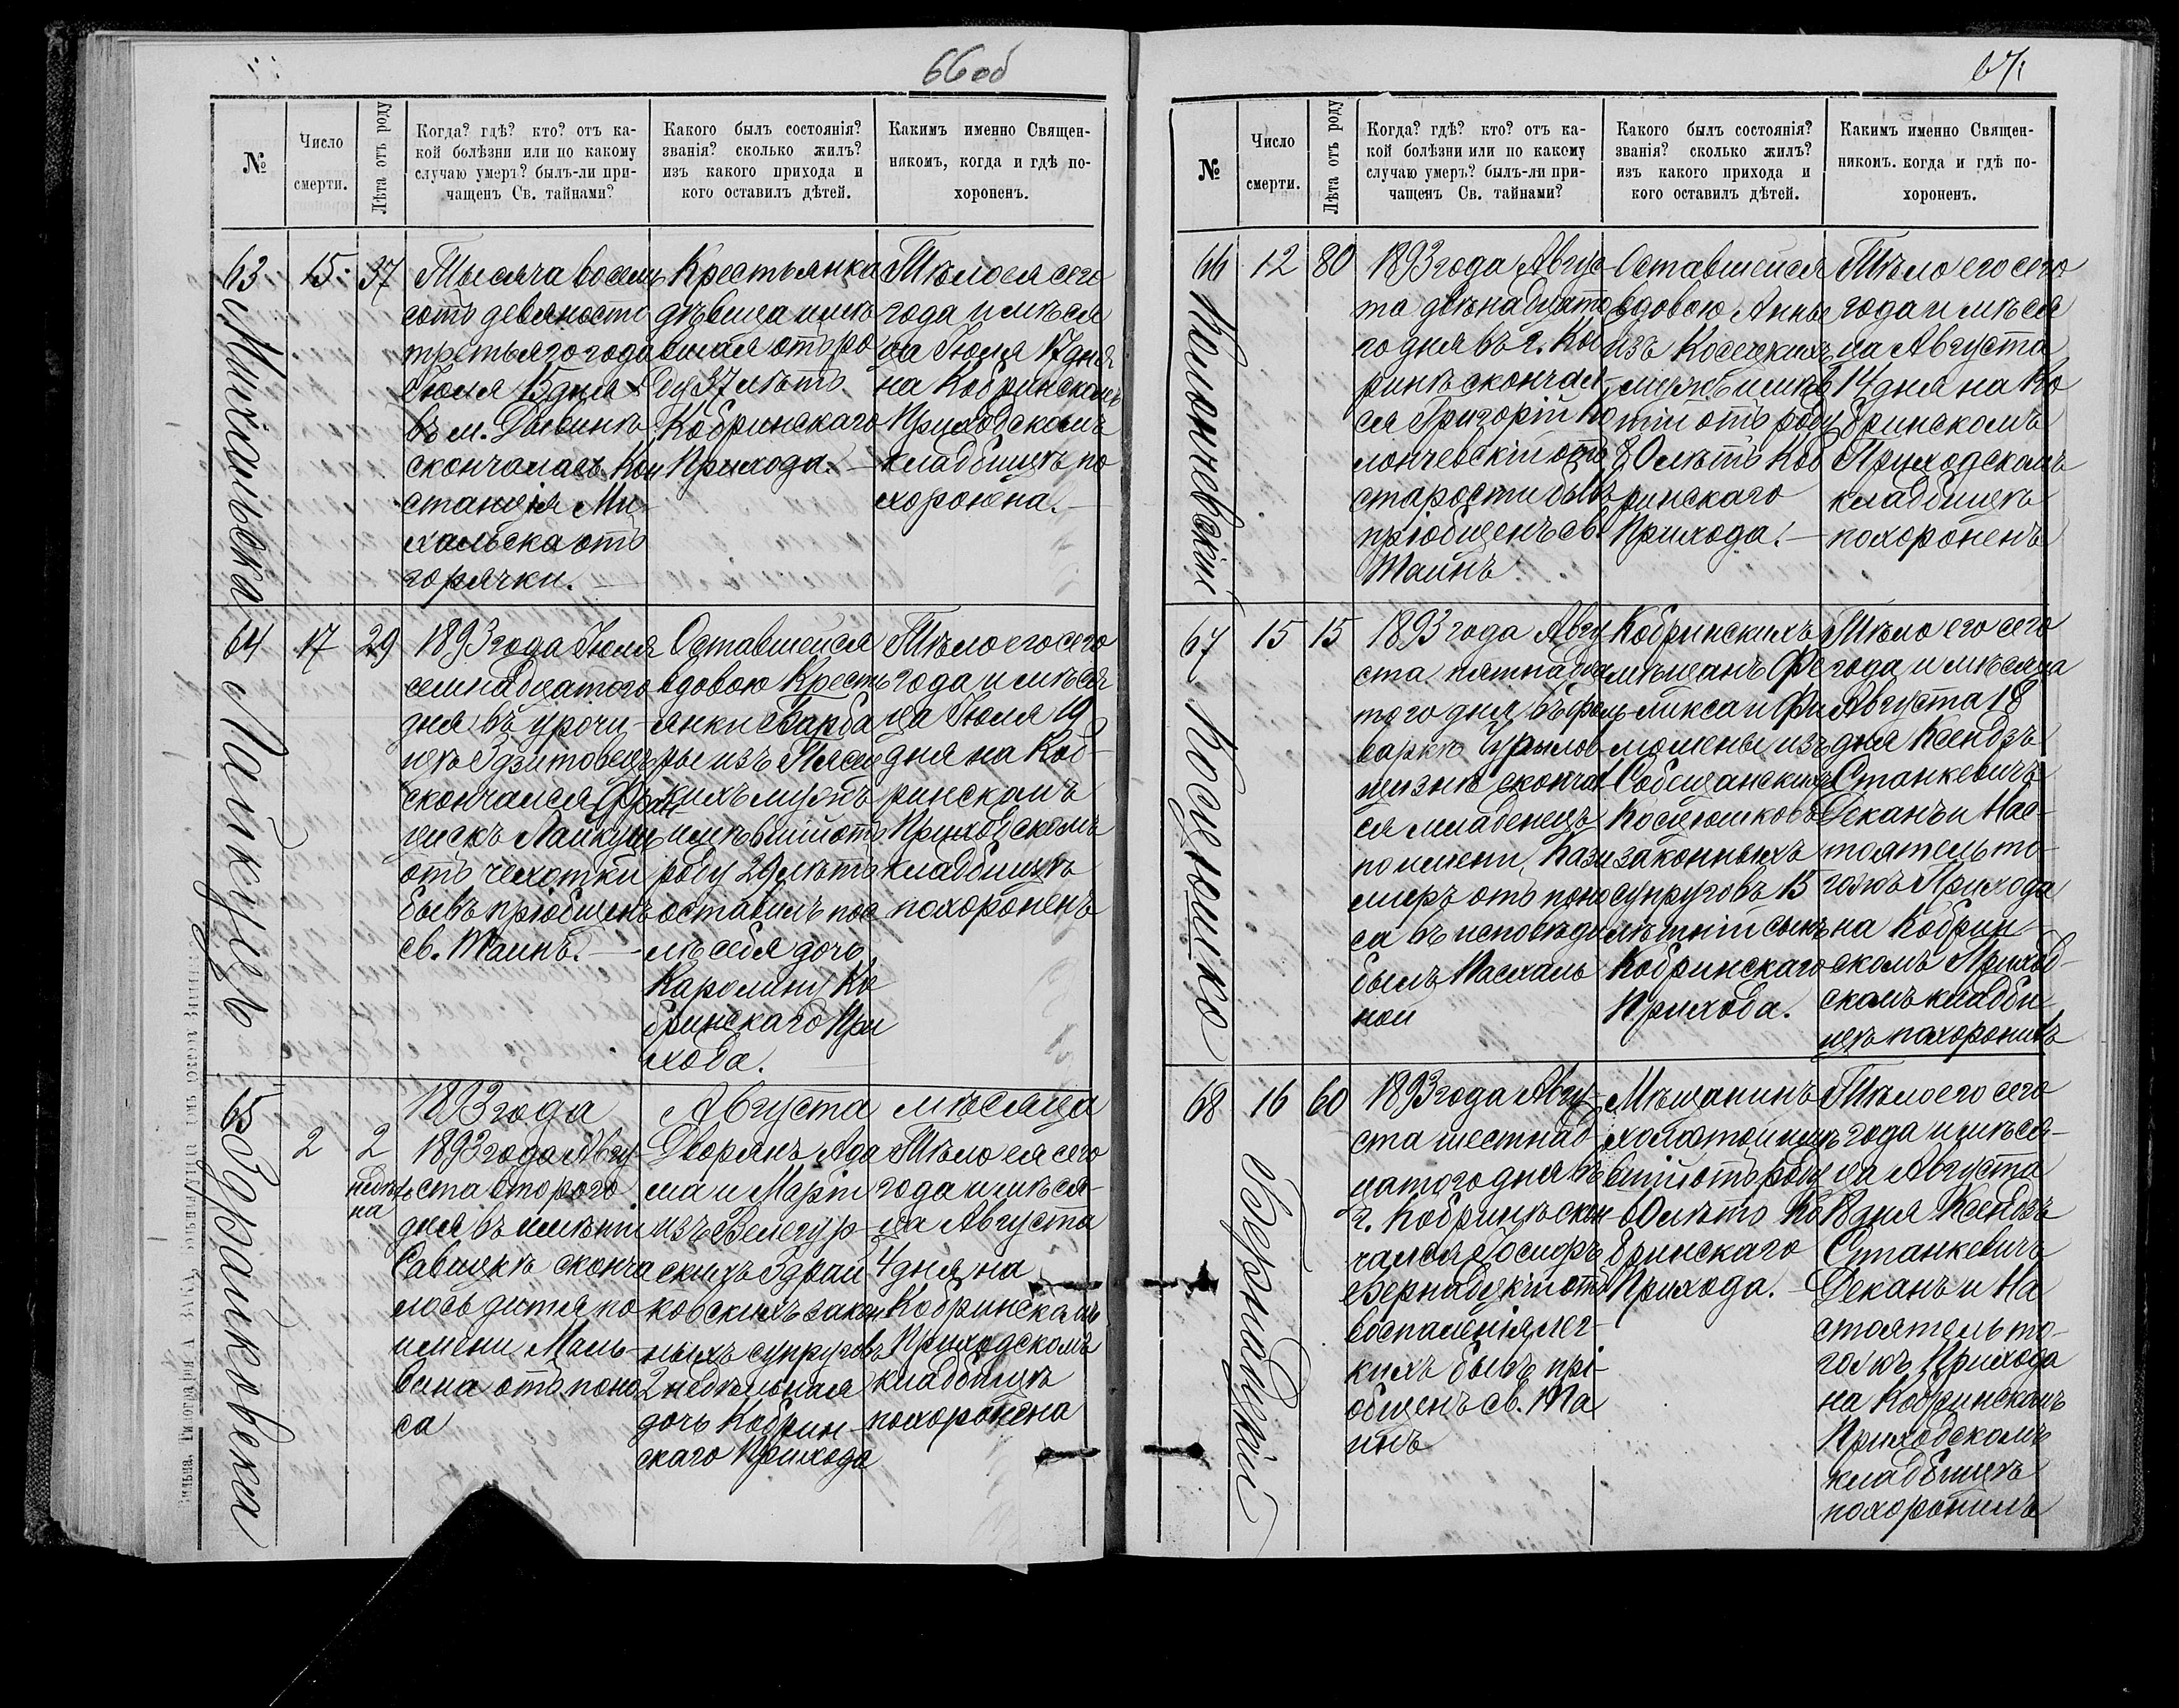 66об
№
Число
смерти.
Лѣта отъ роду
Когда? гдѣ? кто? отъ ка-
кой болѣзни или по какому
случаю умеръ? былъ-ли при-
чащенъ Св. тайнами?
Какого былъ состоянія?
званія? сколько жилъ?
изъ какого прихода и
кого оставилъ дѣтей.
Какимъ именно Священ-
никомъ, когда и гдѣ по-
хороненъ.
63
Михальска
15
37
Тысяча восемь
сотъ девяносто
третьяго года
Іюля 15 дня
въ м. Дывинѣ
скончалась Кон
станція Ми-
хальска отъ
горячки.
Крестьянка
дѣвица имѣ
вшая отъ ро
ду 37 лѣтъ
Кобринскаго
Прихода.
Тѣло ея сего
года и мѣся
ца Іюля 17 дня
на Кобринскомъ
Приходскомъ
кладбищѣ по
хоронена.
64
Лайкуцъ
17
29
1893 года Іюля
семнадцатого
дня въ урочи-
щѣ Эдзитовецъ
скончался Фран
цискъ Лайкуцъ
отъ чехотки
бывъ пріобщенъ
св. Таинъ.
Оставшейся
вдовою Кресть
янки Варба
ры изъ
кихъ мужъ
имѣвшій отъ
роду 29 лѣтъ
оставилъ пос
лѣ себя дочь
Каролину Ко
бринскаго При
хода.
Тѣло его сего
года и мѣся
ца Іюля 19
дня на Коб-
ринскомъ
Приходскомъ
кладбищѣ
похороненъ
1893 года Августа мѣсяца
65
Здрайковска
2
2
недѣль
на
1893 года Авгу
ста второго
дня въ имѣніи
сконча
лось дитя по
имени Маль-
вина отъ поно
са
Дворянъ Ада
ма и Маріи
изъ Велегур-
скихъ Здрай
ковскихъ закон
ныхъ супруговъ
2 недѣльная
дочь Кобрин-
скаго Прихода
Тѣло ея сего
года и мѣся-
ца Августа
4 дня на
Кобринскомъ
Приходскомъ
кладбищѣ
похоронена
67
№
Число
смерти.
Лѣта отъ роду
Когда? гдѣ? кто? отъ ка-
кой болѣзни или по какому
случаю умеръ? былъ-ли при-
чащенъ Св. тайнами?
Какого былъ состоянія?
званія? сколько жилъ?
изъ какого прихода и
кого оставилъ дѣтей.
Какимъ именно Священ-
никомъ. когда и гдѣ по-
хороненъ.
66
Колончевскій
12
80
1893 года Авгус
та двѣнадцато
го дня въ г. Коб
ринѣ скончал-
ся Григорій Ко
лончевскій отъ
старости бывъ
пріобщенъ св.
Таинъ
Оставшейся
вдовою Анны
изъ
мужъ имѣв
шій отъ роду
80 лѣтъ Коб
ринскаго
Прихода.
Тѣло его сего
года и мѣся
ца Августа
14 дня на Ко
бринскомъ
Приходскомъ
кладбищѣ
похороненъ
67
Косцюшко
15
15
1893 года Авгу
ста пятнадца
того дня въ фоль
варкѣ
скончал
ся младенецъ
по имени Кази
миръ отъ поно
са въ исповѣди
былъ Пасхаль
ной
Кобринскихъ
мѣщанъ Фе
ликса и Фи
ломены изъ
Собещанскихъ
Косцюшковъ
законныхъ
супруговъ 15
лѣтній сынъ
Кобринскаго
Прихода.
Тѣло его сего
года и мѣсяца
Августа 18
дня Ксендзъ
Станкевичъ
Деканъ и Нас-
тоятель то-
гожъ Прихода
на Кобрин-
скомъ Приход-
скомъ кладби
щѣ похоронилъ
68
Бернацкій
16
60
1893 года Авгу-
ста шестнад-
цатого дня въ
г. Кобринѣ скон-
чался Іосифъ
Бернацкій отъ
воспаленія лег-
кихъ бывъ прі-
общенъ св. Та
инъ
Мѣщанинъ
холостой имѣ
вшій отъ роду
60 лѣтъ Ко
бринскаго
Прихода.
Тѣло его сего
года и мѣся-
ца Августа
18 дня Ксендзъ
Станкевичъ
Деканъ и На
стоятель то-
гожъ Прихода
на Кобринскомъ
Приходскомъ
кладбищѣ
похоронилъ